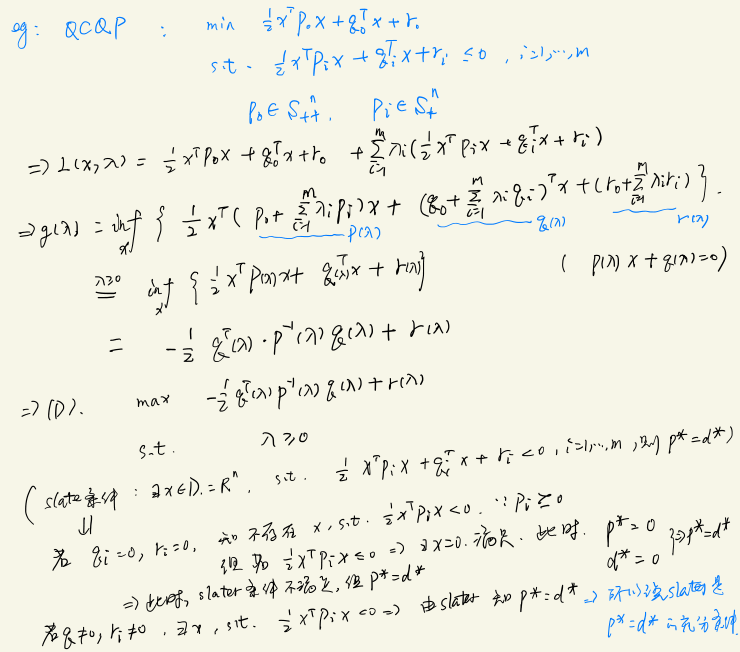 eg: QCQP : min ½xᵀP₀x + q₀ᵀx + r₀
s.t. ½xᵀPᵢx + qᵢᵀx + rᵢ ≤ 0 , i=1,…,m
P₀ ∈ S₊₊ⁿ, Pᵢ ∈ S₊ⁿ
⇒ L(x,λ) = ½xᵀP₀x + q₀ᵀx + r₀ + Σᵢ₌₁ᵐ λᵢ(½xᵀPᵢx + qᵢᵀx + rᵢ)
⇒ g(λ) = inf_x { ½xᵀ(P₀ + Σᵢ₌₁ᵐ λᵢPᵢ)x + (q₀ + Σᵢ₌₁ᵐ λᵢqᵢ)ᵀx + (r₀ + Σᵢ₌₁ᵐ λᵢrᵢ) }.
P(λ) q(λ) r(λ)
λ≥0 = inf_x { ½xᵀP(λ)x + q(λ)ᵀx + r(λ) } ( P(λ)x + q(λ) = 0 )
= -½ qᵀ(λ)·P⁻¹(λ) q(λ) + r(λ)
⇒ (D). max -½ qᵀ(λ) P⁻¹(λ) q(λ) + r(λ)
s.t. λ ≥ 0
( slater条件 : ∃x∈D.=Rⁿ, s.t. ½xᵀPᵢx + qᵢᵀx + rᵢ < 0 , i=1,…,m , 则 p*=d* )
⇓
若 qᵢ=0, rᵢ=0, 知不存在 x, s.t. ½xᵀPᵢx < 0. ∵ Pᵢ ≥ 0
但 ½xᵀPᵢx ≤ 0 ⇒ ∃x=0. 满足. 此时. p*=0 d*=0 } ⇒ p*=d*
⇒ 此时, slater条件不满足, 但 p*=d*
若 q≠0, rᵢ≠0 , ∃x, s.t. ½xᵀPᵢx < 0 ⇒ 由slater 知 p*=d* ⇒ 所以说slater是
p*=d* 的充分条件